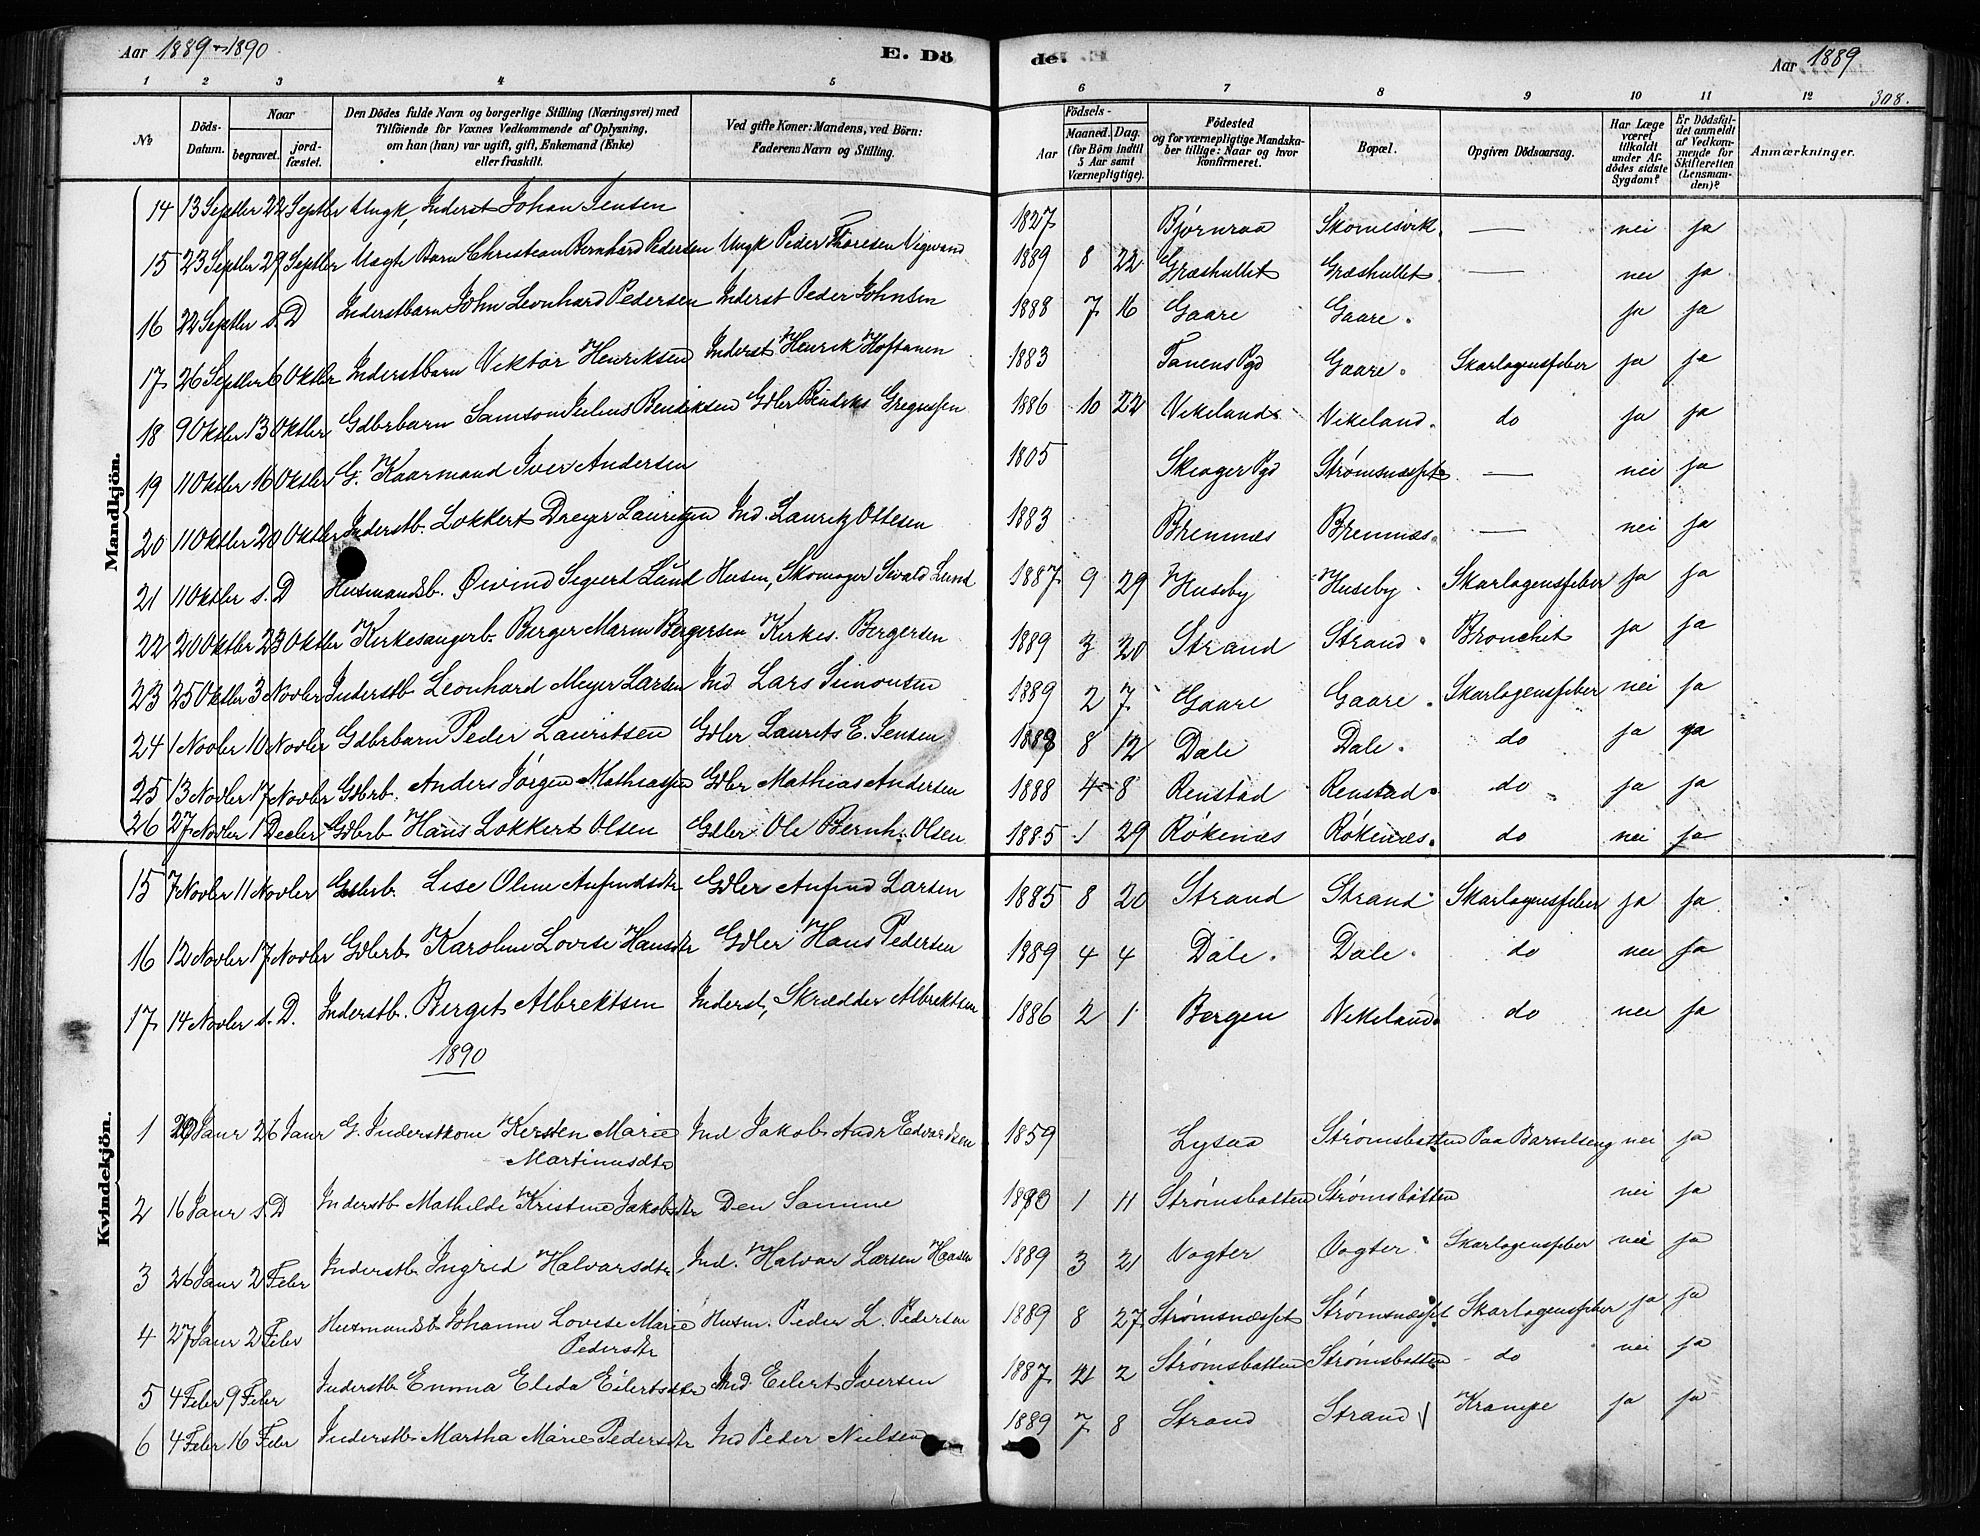 Aar 1889 - 1890
E. Dö
de.
Aar 1889
308.
1 2 3 4 5 6 7 8 9 10 11 12
№
Döds-Datum.
Naar
begravet.
jord-fæstet.
Den Dödes fulde Navn og borgerlige Stilling (Næringsvei) med
Tilföiende for Voxnes Vedkommende af Oplysning,
om han (hun) var ugift, gift, Enkemand (Enke)
eller fraskilt.
Ved gifte Koner: Mandens, ved Börn:
Faderens Navn og Stilling.
Födsels-
Aar
Maaned. Dag.
(for Börn indtil
5 Aar samt
Værnepligtige).
Födested
og for værnepligtige Mandska-
ber tillige: Naar og hvor
konfirmeret.
Bopæl.
Opgiven Dödsaarsag.
Har Læge
været
tilkaldt
under Af-
dödes sidste
Sygdom?
Er Dödsfal-
det anmeldt
af Vedkom-
mende for
Skifteretten
(Lensman-
den)?
Anmærkninger.
Mandkjön.
14 13 Septbr 22 Septbr Ungk, Inderst Johan Jensen 1827 Bjørnraa Skornesvik. — nei ja
15 23 Septbr 29 Septbr Uægte Barn Christean Bernhard Pedersen Ungk Peder Thoresen Vigwand 1889 8 22 Græshullet Græshullet — nei ja
16 22 Septbr s. D Inderstbarn John Leonhard Pedersen Inderst Peder Johnsen 1888 7 16 Gaare Gaare. ja ja
17 26 Septbr 6 Oktbr Inderstbarn Viktor Henriksen Inderst Henrik Hoftanen 1883 Tanens Pgd Gaare. Skarlagensfeber ja ja
18 9 Oktbr 13 Oktbr Gdbrbarn Samson Julius Bendiksen Gdbr Bendiks Gregussen 1886 10 22 Vikeland Vikeland. do ja ja
19 11 Oktbr 16 Oktbr G. Kaarmand Iver Andersen 1805 Skioger Pgd Strømsnæsset — nei ja
20 11 Oktbr 20 Oktbr Inderstb. Lokkert Dreyer Lauritzen Ind. Lauritz Ottesen 1883 Bremnæs Bremnæs. — nei ja
21 11 Oktbr s. D Husmandsb. Øivind Sigurt Lund Husm, Skomager Sivald Lund 1887 9 29 Huseby Huseby. Skarlagensfeber ja ja
22 20 Oktbr 23 Oktbr Kirkesangerb. Berger Marin Bergersen Kirkes. Bergersen 1889 3 20 Strand Strand. Bronchit ja ja
23 25 Oktbr 3 Novbr Inderstb Leonhard Meyer Larsen Ind Lars Simonsen 1889 2 7 Gaare Gaare. Skarlagensfeber nei ja
24 1 Novbr 10 Novbr Gdbrbarn Peder Lauritsen Gdbr Laurits E. Jensen 1888 8 12 Dale Dale. do ja ja
25 13 Novbr 17 Novbr Gdbrb. Anders Jörgen Mathiassen Gdbr Mathias Andersen 1888 4 8 Renstad Renstad. do ja ja
26 27 Novbr 1 Decbr Gdbrb Hans Lokkert Olsen Gdbr Ole Bernh. Olsen 1885 1 29 Rökenæs Rökenæs. do nei ja
Kvindekjön.
15 7 Novbr 11 Novbr Gdbrb. Lise Oline Anfindsdtr Gdbr Anfind Larsen 1885 8 20 Strand Strand Skarlagensfeber ja ja
16 12 Novbr 17 Novbr Gdbrb Karoline Lovise Hansdtr Gdbr Hans Pedersen 1889 4 4 Dale. Dale. do nei ja
17 14 Novbr s. D. Inderstb. Berget Albrektsen Inderst, Skrædder Albrektsen 1886 2 1 Bergen Vikeland. do nei ja
1890
1 Janr 26 Janr G. Inderstkone Kersten Marie Martinusdtr Ind Jakob Andr Edvardsen 1859 Lysaa Strømsbotten Paa Barselseng nei ja
2 16 Janr s. D Inderstb Mathilde Kristine Jakobsdtr Den Samme 1890 1 11 Strømsbotten Strømsbotten nei ja
3 26 Janr 2 Febr Inderstb Ingrid Halvarsdtr Ind. Halvar Larsen Haasen 1889 3 21 Vogter Vogter. Skarlagensfeber nei ja
4 27 Janr 2 Febr Husmandsb Johanne Lovise Marie Pedersdtr Husm. Peder L. Pedersen 1889 8 27 Strømsnæsset Strømsnæsset Skarlagensfeber ja ja
5 4 Febr 9 Febr Inderstb Emma Elida Eilertsdtr Ind Eilert Iversen 1887 2 Strømsbotten Strømsbotten do nei ja
6 4 Febr 16 Febr Inderstb. Martha Marie Pedersdtr Ind Peder Nielsen 1889 7 8 Strand Strand Krampe ja ja